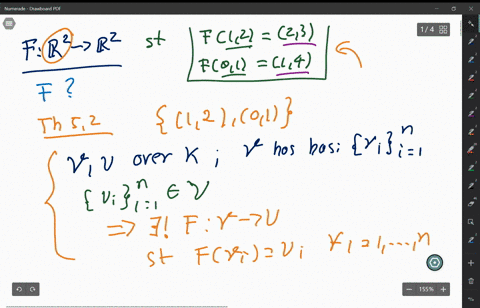 Numerade - Drawboard PDF
1/4
F: ℝ² → ℝ² st F(1,2) = (2,3)
F(0,1) = (1,4)
F ?
Th 5,2 {(1,2),(0,1)}
V, U over K ; V has basi {vᵢ}ⁿᵢ₌₁
{uᵢ}ⁿᵢ₌₁ ∈ V
⇒ ∃! F: V → U
st F(vᵢ) = uᵢ ∀ i = 1, ..., n
155%